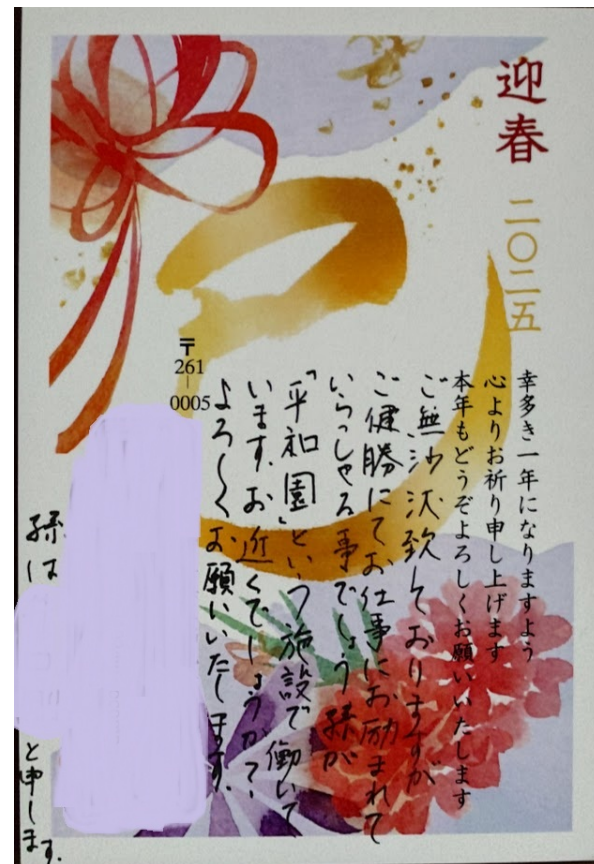 迎春
二〇二五
幸多き一年になりますよう
心よりお祈り申し上げます
本年もどうぞよろしくお願いいたします
ご無沙汰致しておりますが
ご健勝にてお仕事にお励まれて
いらっしゃる事でしょう 孫が
「平和園」という施設で働いて
います。お近くでしょうか?
よろしくお願いいたします。
〒
261
-
0005
孫は
と申します。